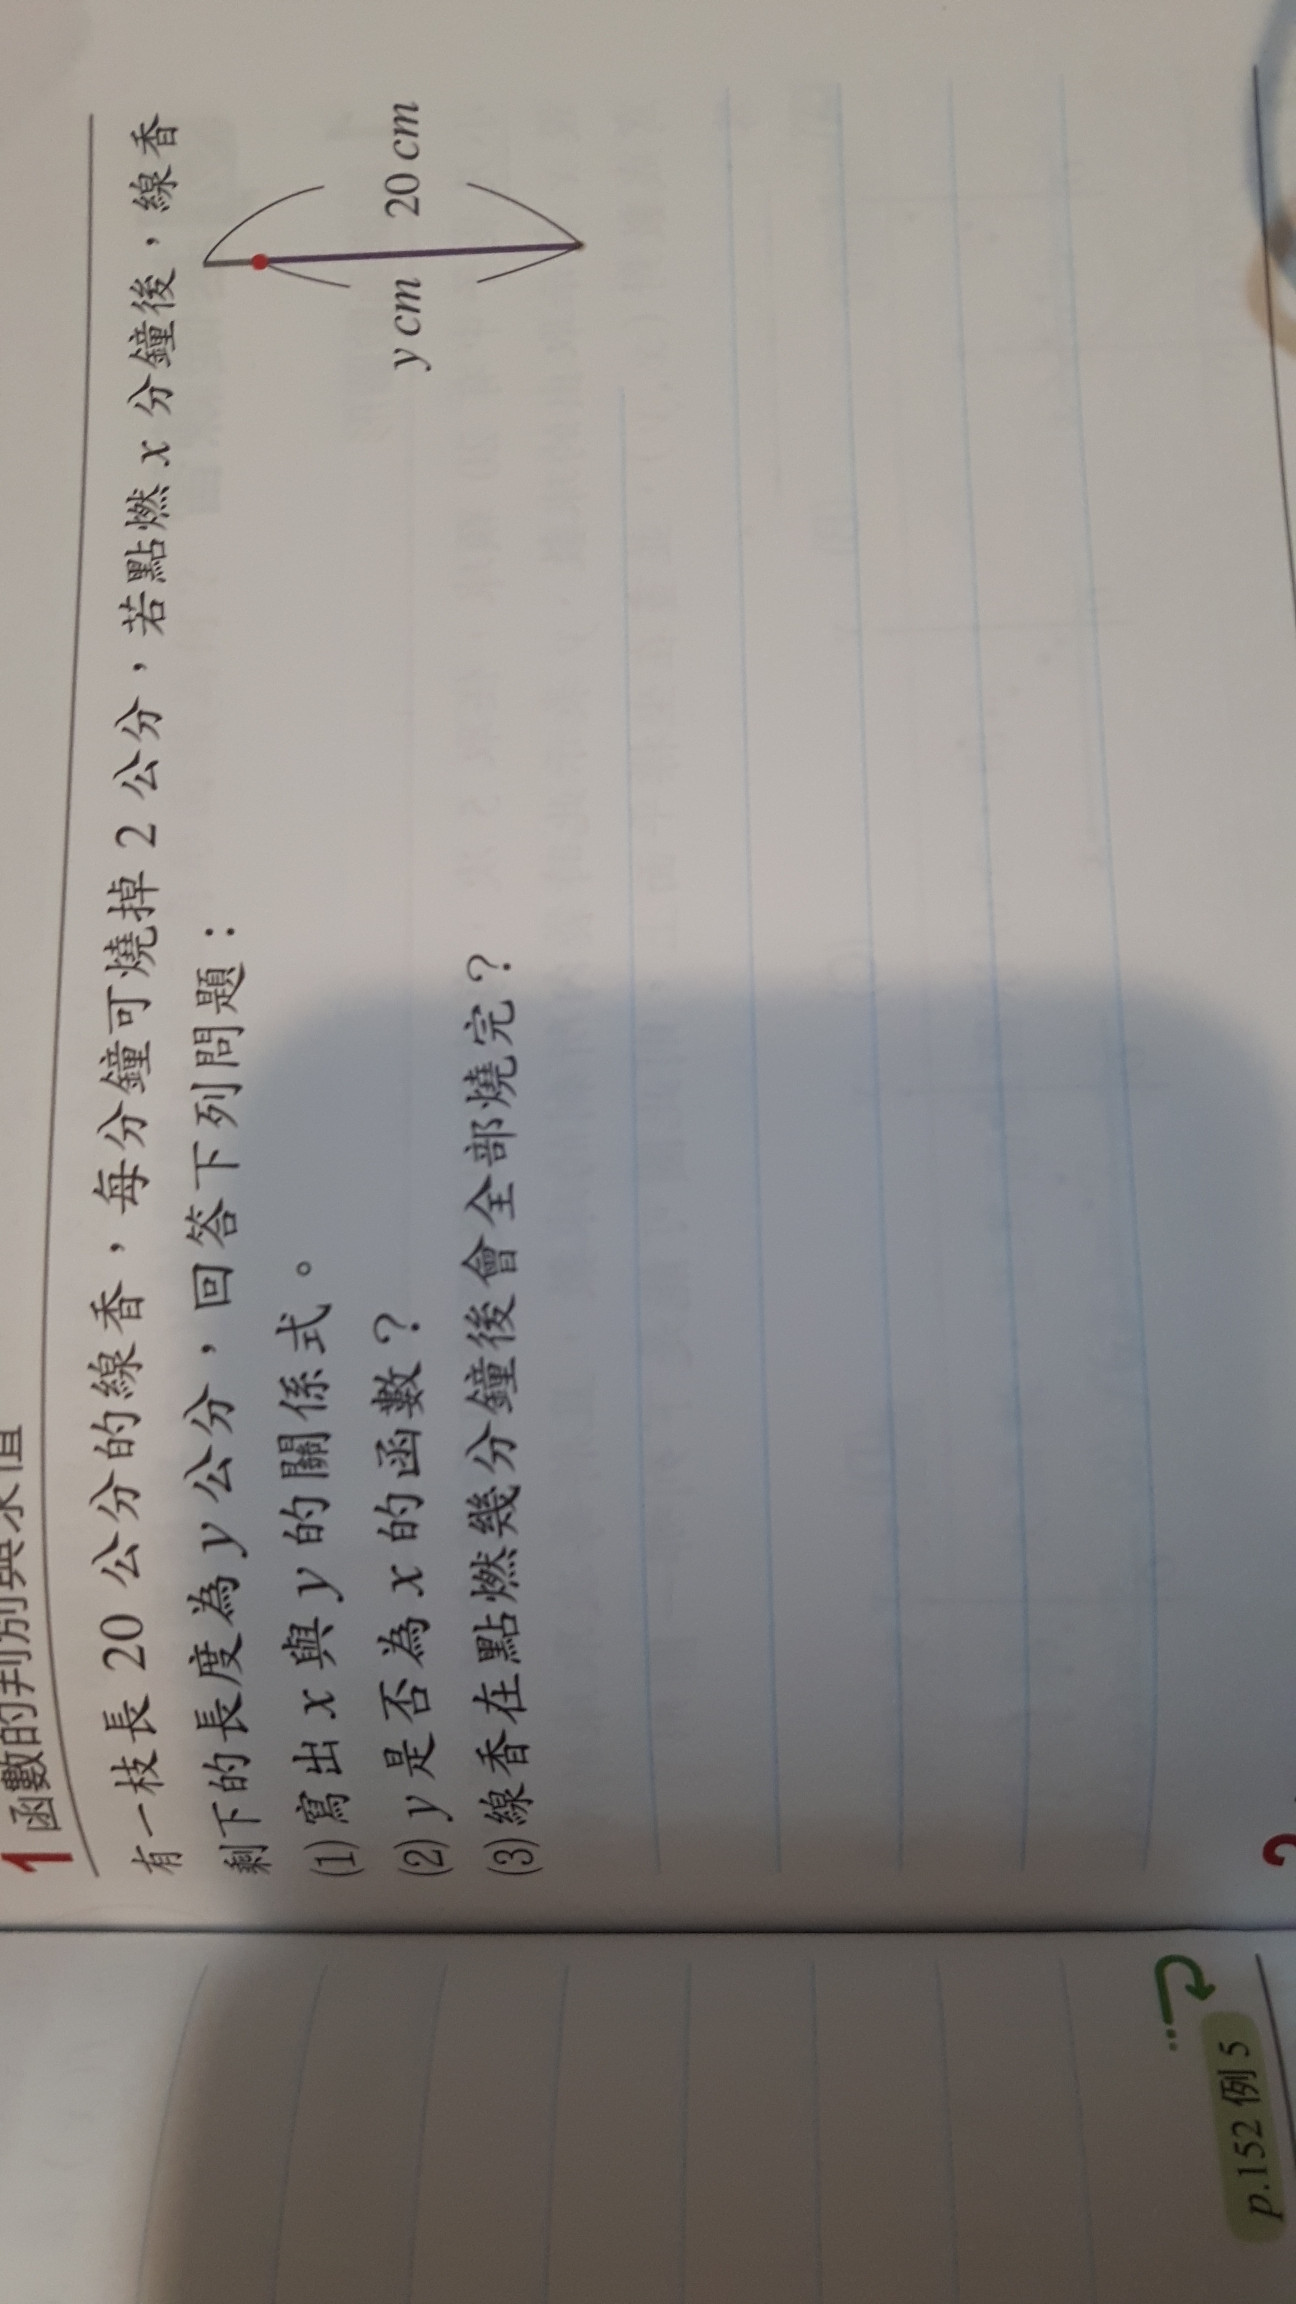 1 函數的判別與求值
有一枝長 20 公分的線香，每分鐘可燒掉 2 公分，若點燃 x 分鐘後，線香
剩下的長度為 y 公分，回答下列問題：
(1) 寫出 x 與 y 的關係式。
(2) y 是否為 x 的函數？
(3) 線香在點燃幾分鐘後會全部燒完？
y cm
20 cm
p.152 例 5
2